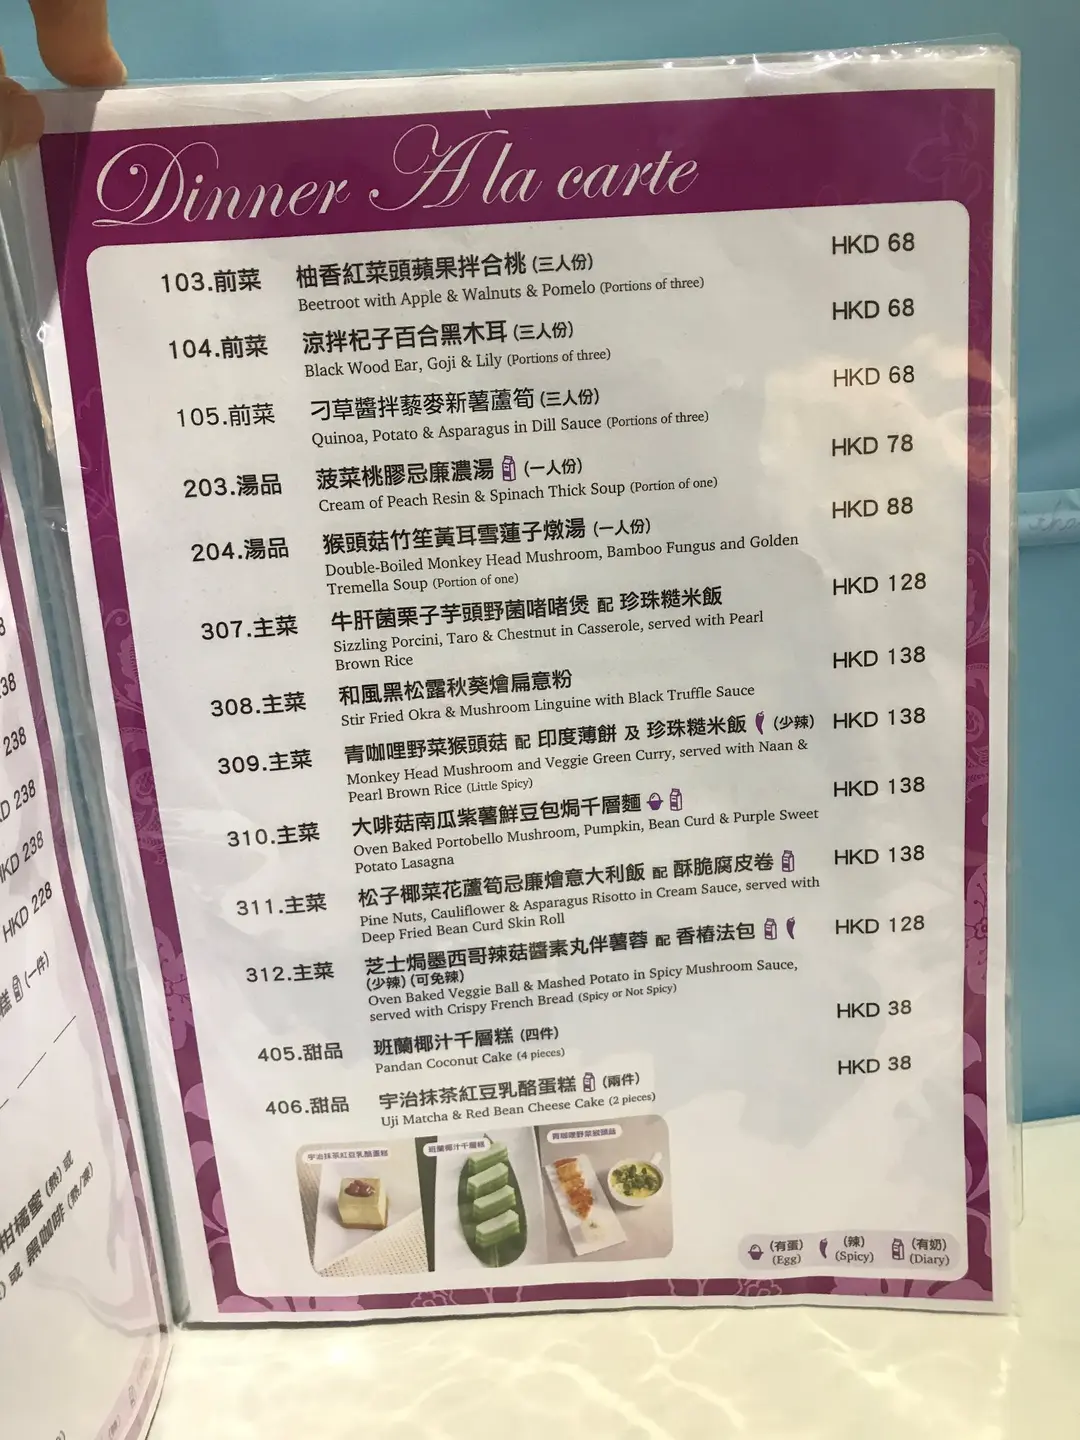 Dinner A la carte
103.前菜 柚香紅菜頭蘋果拌合桃 (三人份) HKD 68
Beetroot with Apple & Walnuts & Pomelo (Portions of three)
104.前菜 涼拌杞子百合黑木耳 (三人份) HKD 68
Black Wood Ear, Goji & Lily (Portions of three)
105.前菜 刁草醬拌藜麥新薯蘆筍 (三人份) HKD 68
Quinoa, Potato & Asparagus in Dill Sauce (Portions of three)
203.湯品 菠菜桃膠忌廉濃湯 (一人份) HKD 78
Cream of Peach Resin & Spinach Thick Soup (Portion of one)
204.湯品 猴頭菇竹笙黃耳雪蓮子燉湯 (一人份) HKD 88
Double-Boiled Monkey Head Mushroom, Bamboo Fungus and Golden
Tremella Soup (Portion of one)
307.主菜 牛肝菌栗子芋頭野菌啫啫煲 配 珍珠糙米飯 HKD 128
Sizzling Porcini, Taro & Chestnut in Casserole, served with Pearl
Brown Rice
308.主菜 和風黑松露秋葵燴扁意粉 HKD 138
Stir Fried Okra & Mushroom Linguine with Black Truffle Sauce
309.主菜 青咖哩野菜猴頭菇 配 印度薄餅 及 珍珠糙米飯 (少辣) HKD 138
Monkey Head Mushroom and Veggie Green Curry, served with Naan &
Pearl Brown Rice (Little Spicy)
310.主菜 大啡菇南瓜紫薯鮮豆包焗千層麵 HKD 138
Oven Baked Portobello Mushroom, Pumpkin, Bean Curd & Purple Sweet
Potato Lasagna
311.主菜 松子椰菜花蘆筍忌廉燴意大利飯 配 酥脆腐皮卷 HKD 138
Pine Nuts, Cauliflower & Asparagus Risotto in Cream Sauce, served with
Deep Fried Bean Curd Skin Roll
312.主菜 芝士焗墨西哥辣菇醬素丸伴薯蓉 配 香樁法包 HKD 128
(少辣) (可免辣)
Oven Baked Veggie Ball & Mashed Potato in Spicy Mushroom Sauce,
served with Crispy French Bread (Spicy or Not Spicy)
405.甜品 班蘭椰汁千層糕 (四件) HKD 38
Pandan Coconut Cake (4 pieces)
406.甜品 宇治抹茶紅豆乳酪蛋糕 (兩件) HKD 38
Uji Matcha & Red Bean Cheese Cake (2 pieces)
宇治抹茶紅豆乳酪蛋糕
班蘭椰汁千層糕
青咖哩野菜猴頭菇
(有蛋) (辣) (有奶)
(Egg) (Spicy) (Diary)
38
238
D 238
HKD 238
HKD 228
糕 (一件)
柑橘蜜 (熱) 或
或 黑咖啡 (熱/凍)